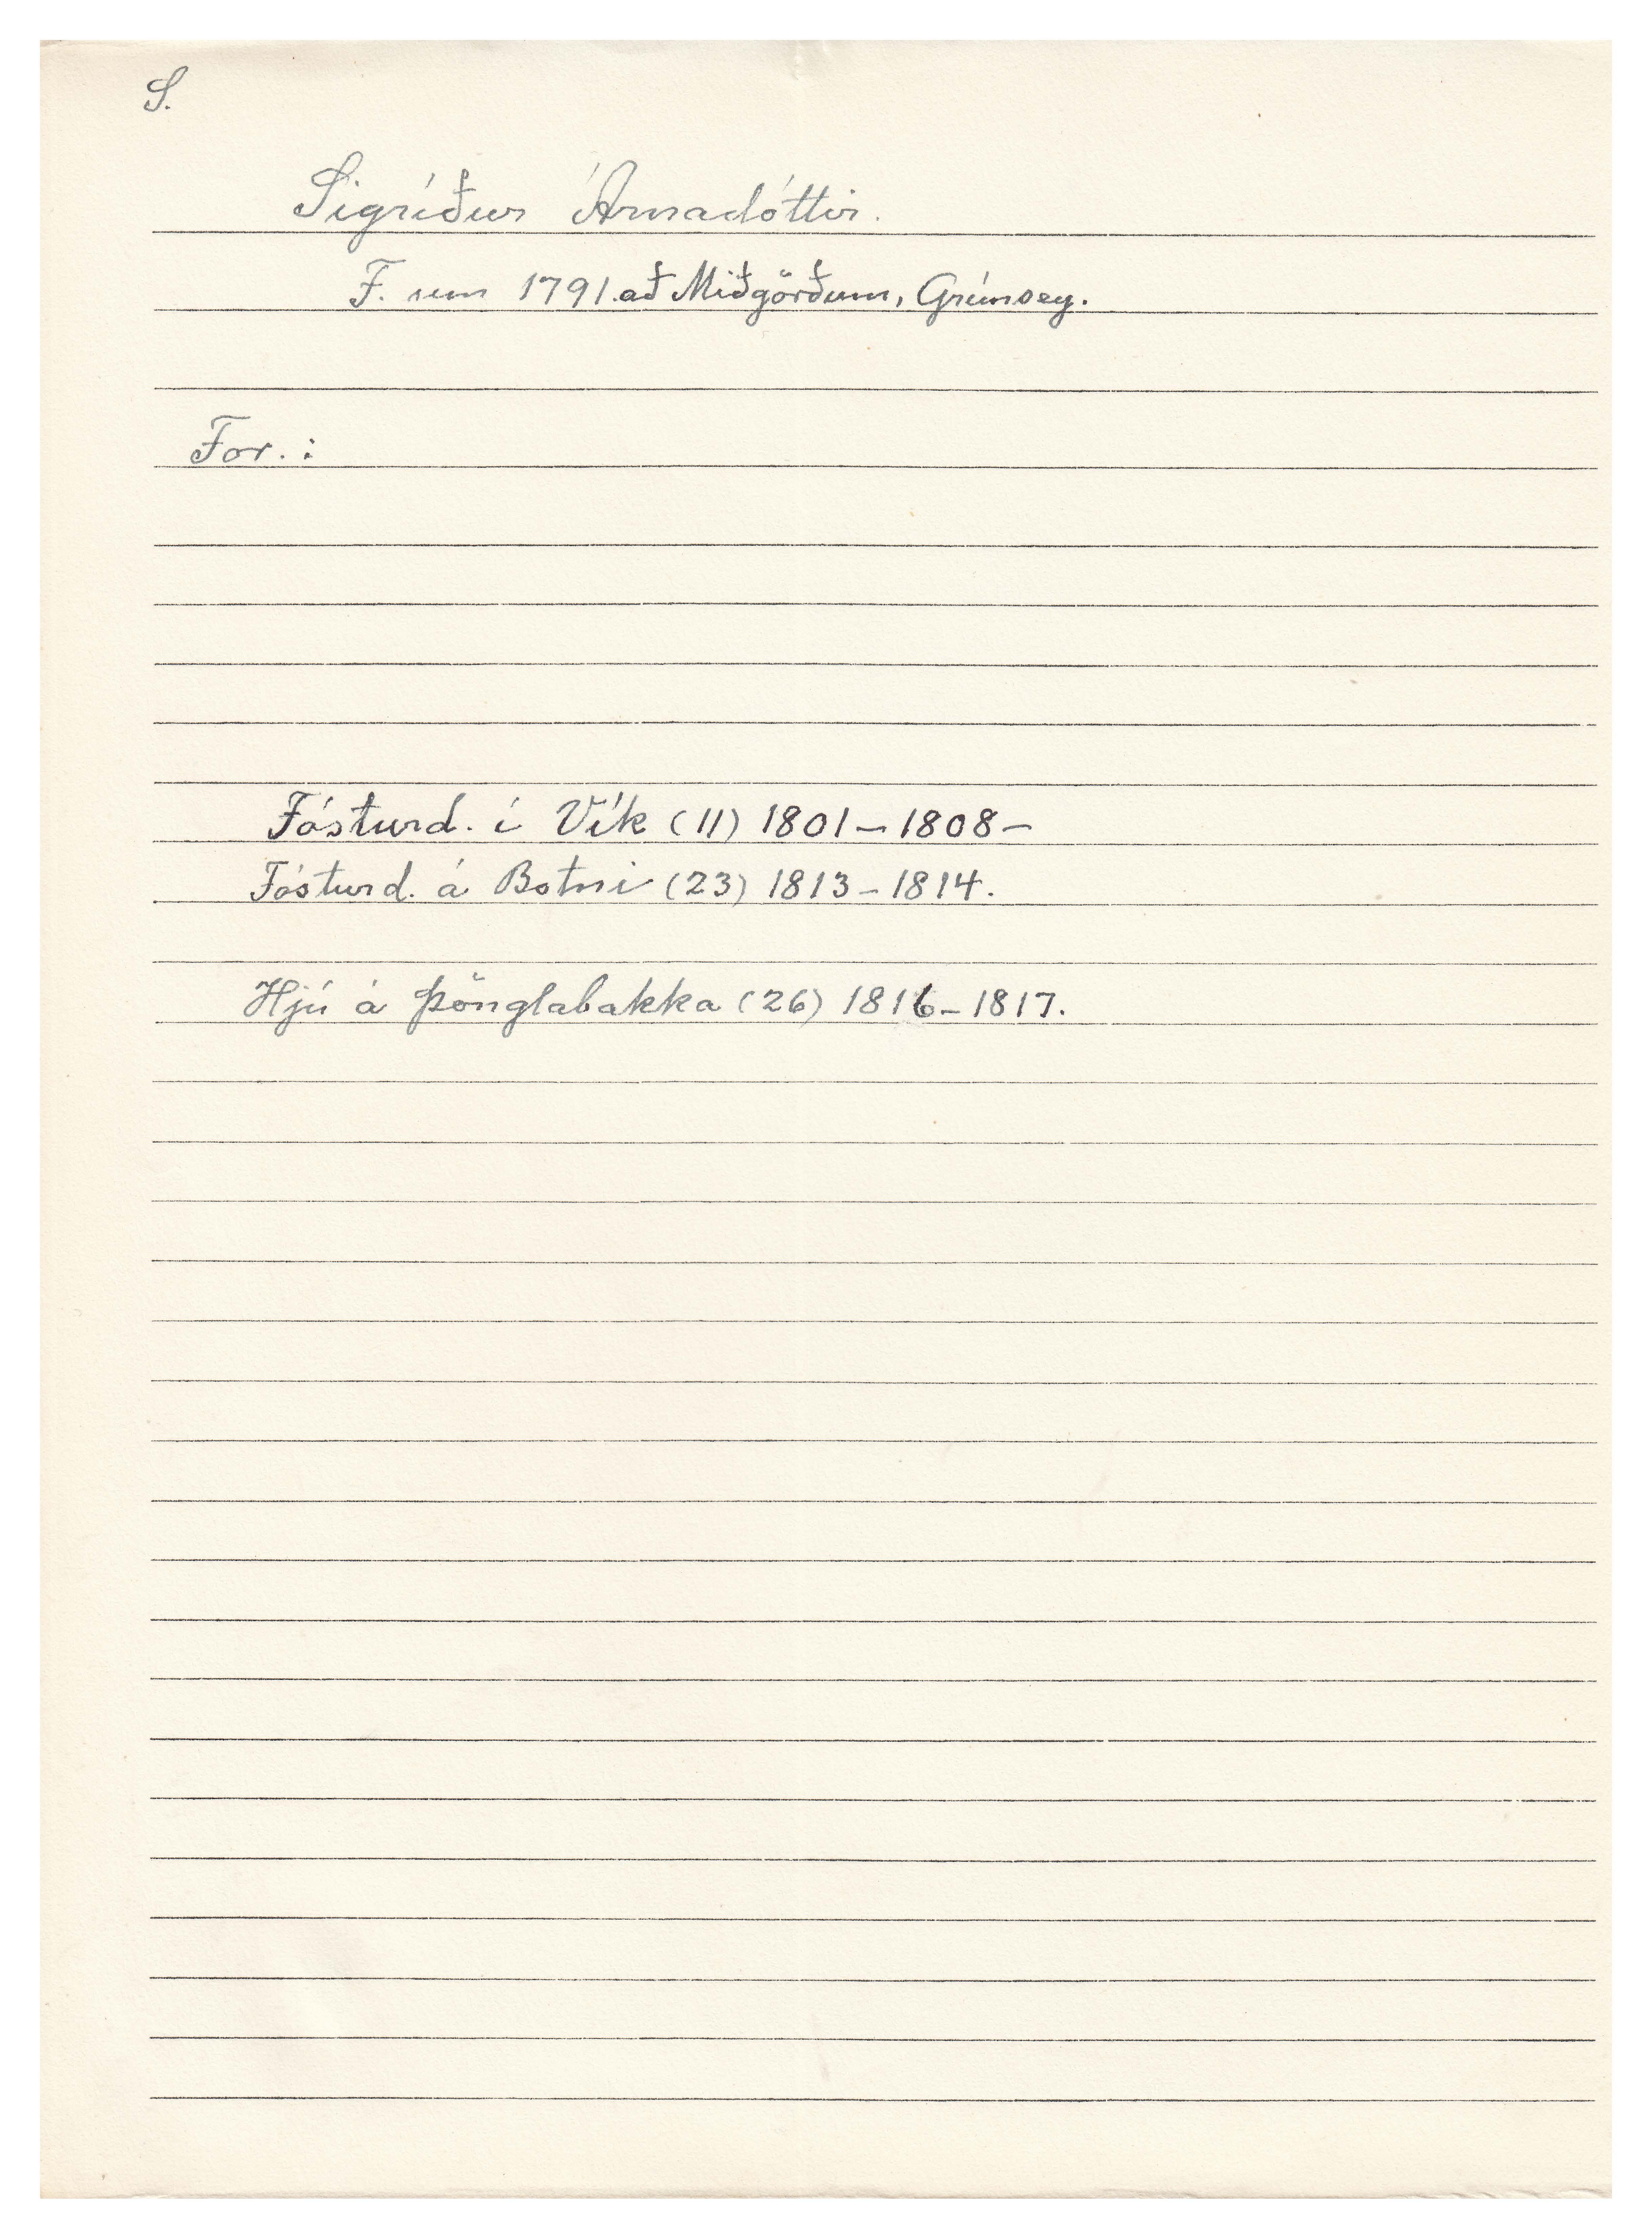 S.
Sigríður Árnadóttir.
F. um 1791. að Miðgörðum, Grímsey.
For. :
Fósturd. í Vík (11) 1801 – 1808 –
Fósturd. á Botni (23) 1813 – 1814.
Hjú á Þönglabakka (26) 1816 – 1817.